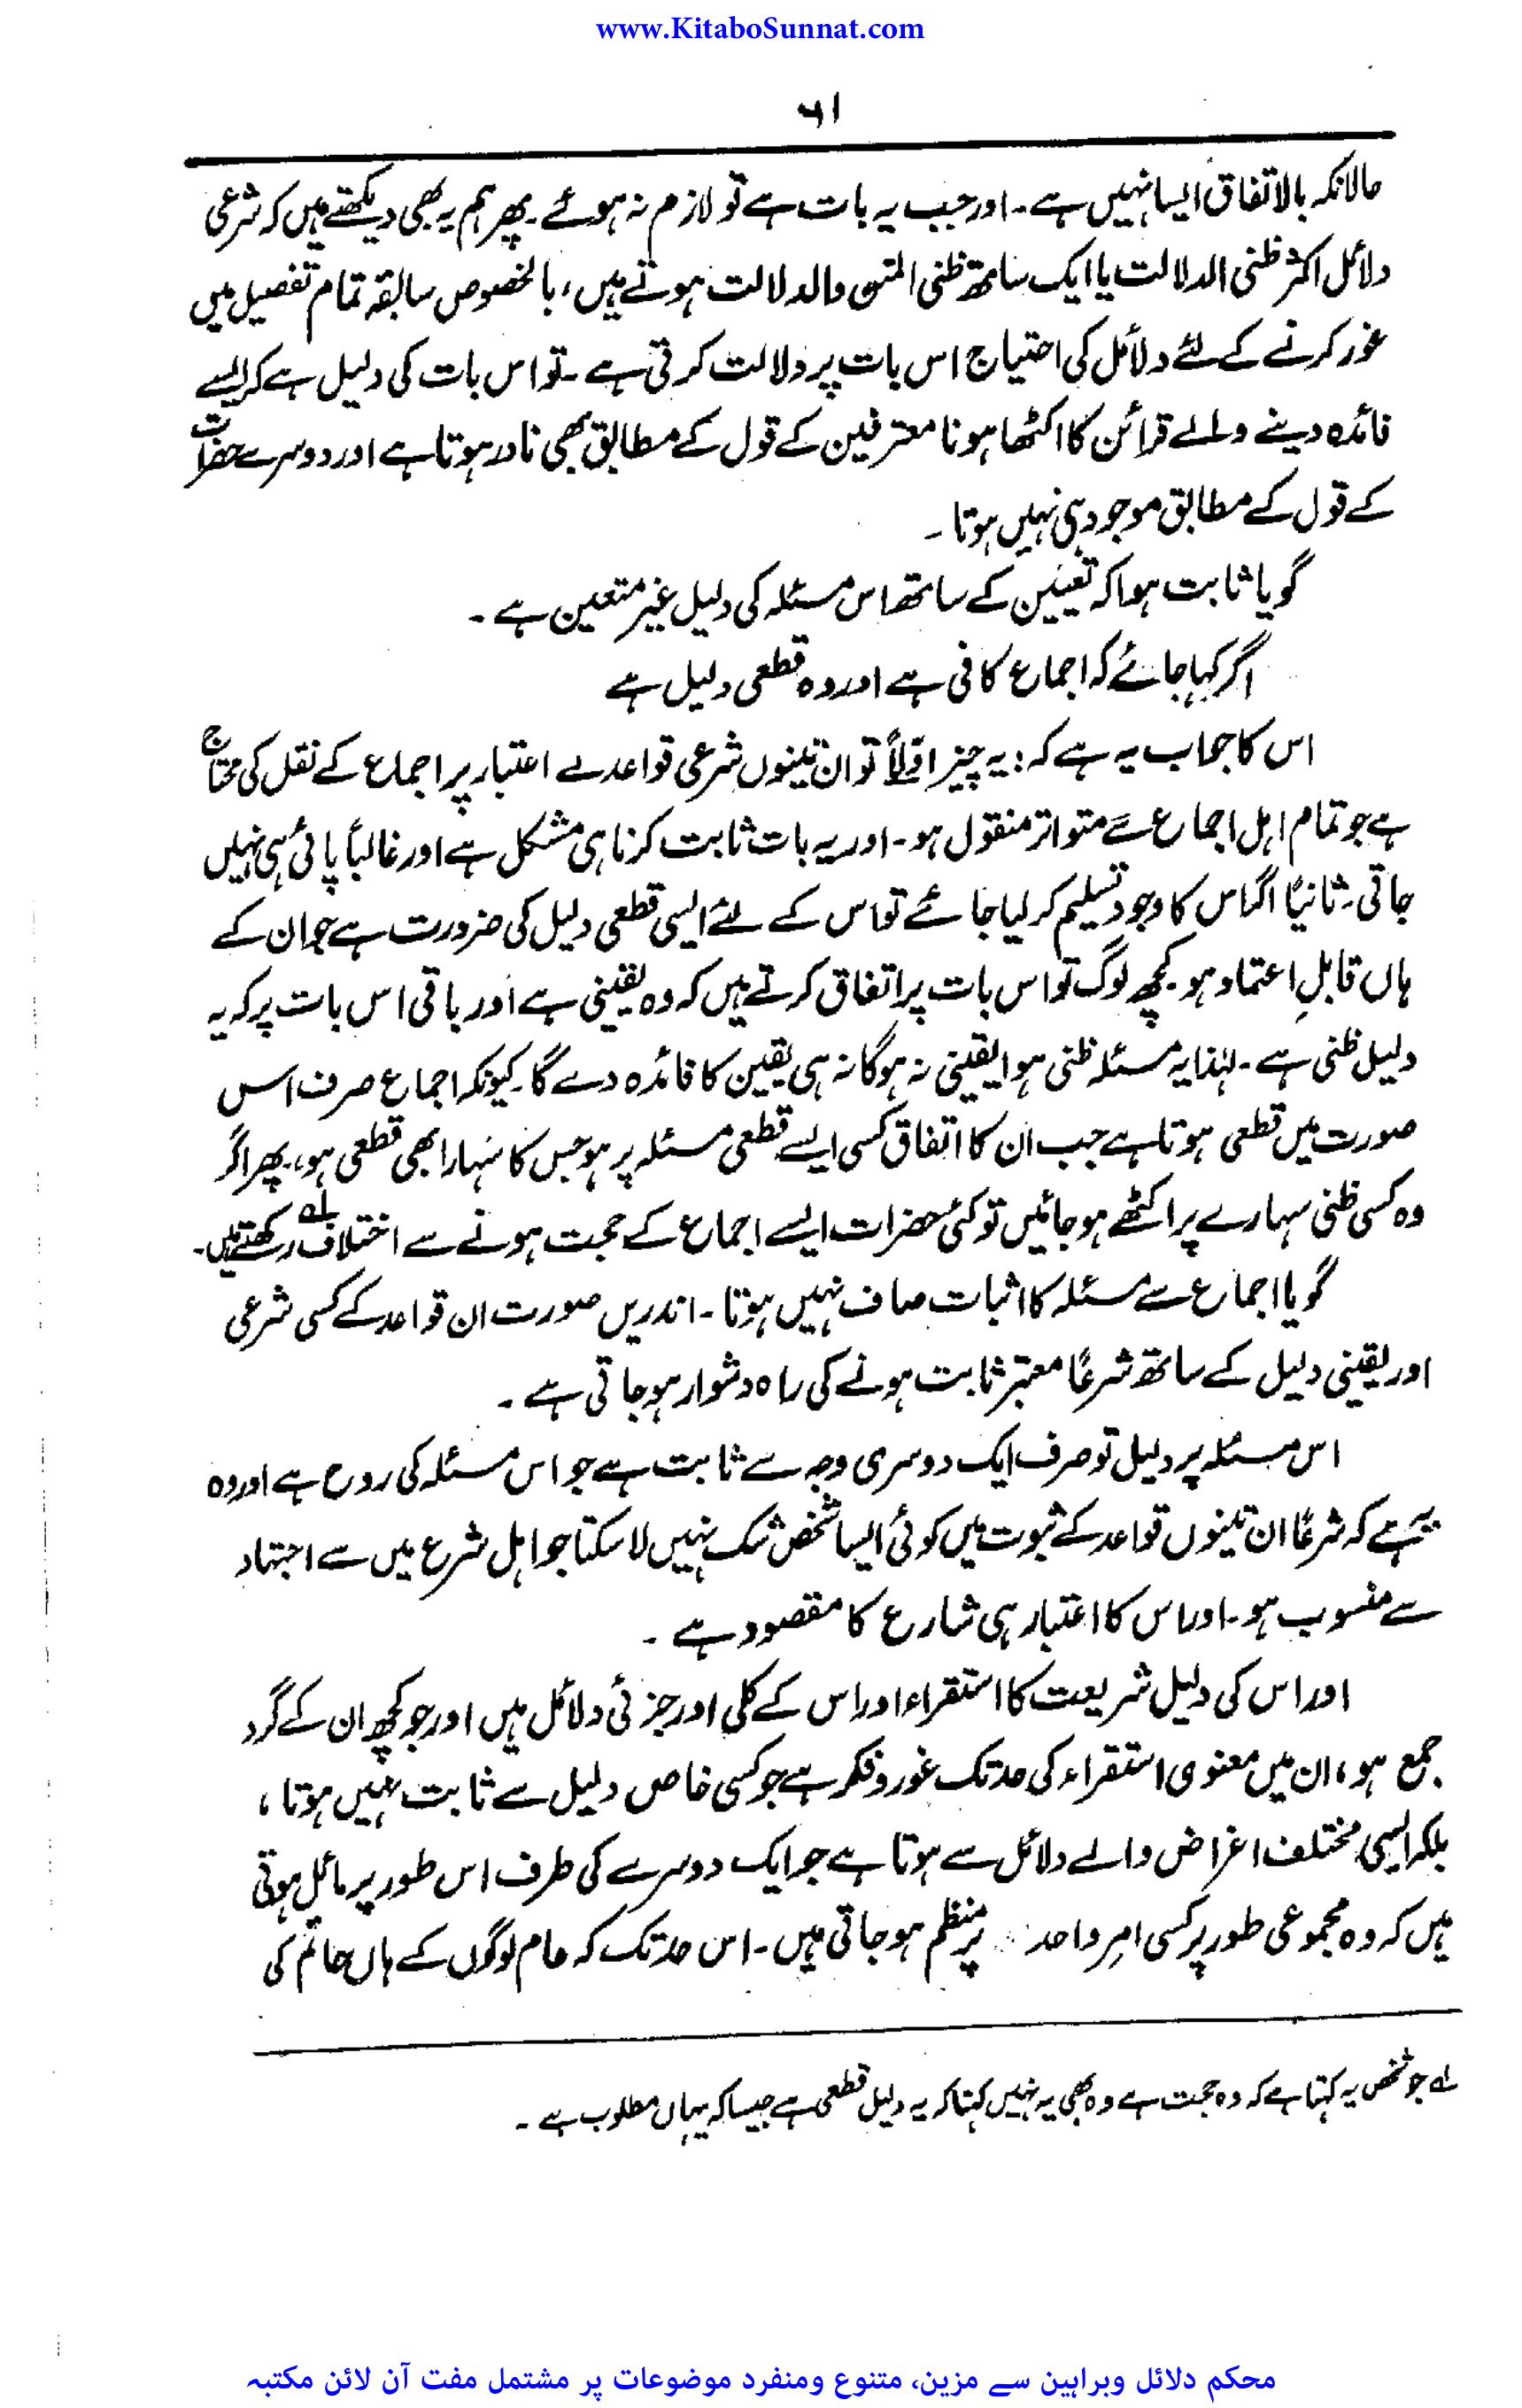 www.KitaboSunnat.com
۶۱
حالانکہ بالاتفاق ایسا نہیں ہے۔ اور جب یہ بات ہے تو لازم نہ ہوئے۔ پھر ہم یہ بھی دیکھتے ہیں کہ شرعی
دلائل اکثر ظنی الدلالت یا ایک ساتھ ظنی المتن والدلالت ہوتے ہیں، بالخصوص سابقہ تمام تفصیل میں
غور کرنے کے لئے دلائل کی احتیاج اس بات پر دلالت کرتی ہے۔ تو اس بات کی دلیل ہے کہ ایسے
فائدہ دینے والے قرائن کا اکٹھا ہونا معترفین کے قول کے مطابق بھی نادر ہوتا ہے اور دوسرے حضرات
کے قول کے مطابق موجود ہی نہیں ہوتا ۔
گویا ثابت ہوا کہ تعیین کے ساتھ اس مسئلہ کی دلیل غیر متعین ہے ۔
اگر کہا جائے کہ اجماع کافی ہے اور وہ قطعی دلیل ہے
اس کا جواب یہ ہے کہ : یہ چیز اوّلاً تو ان تینوں شرعی قواعد کے اعتبار پر اجماع کے نقل کی محتاج
ہے جو تمام اہل اجماع سے متواتر منقول ہو۔ اور یہ بات ثابت کرنا ہی مشکل ہے اور غالباً پائی ہی نہیں
جاتی۔ ثانیاً اگر اس کا وجود تسلیم کر لیا جائے تو اس کے لئے ایسی قطعی دلیل کی ضرورت ہے جو ان کے
ہاں قابلِ اعتماد ہو۔ کچھ لوگ تو اس بات پر اتفاق کرتے ہیں کہ وہ یقینی ہے اور باقی اس بات پر کہ یہ
دلیل ظنی ہے۔ لہٰذا یہ مسئلہ ظنی ہوا یقینی نہ ہوگا نہ ہی یقین کا فائدہ دے گا۔ کیونکہ اجماع صرف اس
صورت میں قطعی ہوتا ہے جب ان کا اتفاق کسی ایسے قطعی مسئلہ پر ہو جس کا سہارا بھی قطعی ہو، پھر اگر
وہ کسی ظنی سہارے پر اکٹھے ہو جائیں تو کئی حضرات ایسے اجماع کے حجت ہونے سے اختلاف ؎۱ رکھتے ہیں۔
گویا اجماع سے مسئلہ کا اثبات صاف نہیں ہوتا ۔ اندریں صورت ان قواعد کے کسی شرعی
اور یقینی دلیل کے ساتھ شرعًا معتبر ثابت ہونے کی راہ دشوار ہو جاتی ہے ۔
اس مسئلہ پر دلیل تو صرف ایک دوسری وجہ سے ثابت ہے جو اس مسئلہ کی روح ہے اور وہ
یہ ہے کہ شرعًا ان تینوں قواعد کے ثبوت میں کوئی ایسا شخص شک نہیں لا سکتا جو اہل شرع میں سے اجتہاد
سے منسوب ہو۔ اور اس کا اعتبار ہی شارع کا مقصود ہے ۔
اور اس کی دلیل شریعت کا استقراء اور اس کے کلی اور جزئی دلائل ہیں اور جو کچھ ان کے گرد
جمع ہو، ان میں معنوی استقراء کی حد تک غور و فکر ہے جو کسی خاص دلیل سے ثابت نہیں ہوتا ،
بلکہ ایسی مختلف اغراض والے دلائل سے ہوتا ہے جو ایک دوسرے کی طرف اس طور پر مائل ہوتی
ہیں کہ وہ مجموعی طور پر کسی امرِ واحد پر منظم ہو جاتی ہیں۔ اس حد تک کہ عام لوگوں کے ہاں حاتم کی
؎۱ جو شخص یہ کہتا ہے کہ وہ حجت ہے وہ بھی یہ نہیں کہتا کہ یہ دلیل قطعی ہے جیسا کہ یہاں مطلوب ہے ۔
محکم دلائل وبراہین سے مزین، متنوع ومنفرد موضوعات پر مشتمل مفت آن لائن مکتبہ